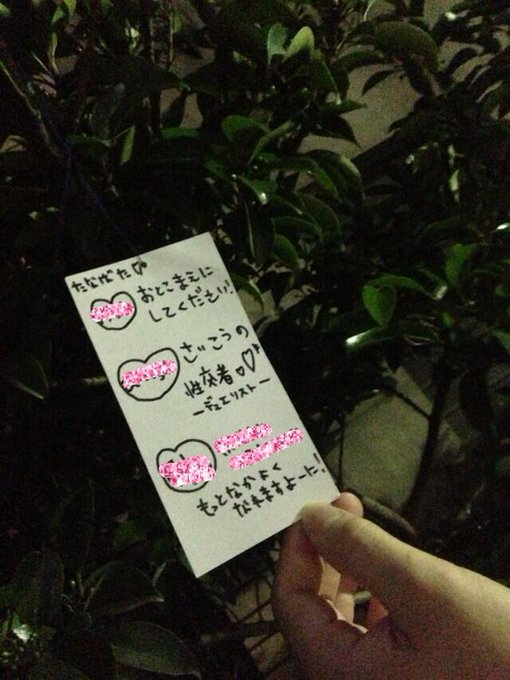 たなばた♡
おとこまえに
してください!
さいこうの
性交者♡♡
ーデュエリストー
もっとなかよく
なれますよーに!